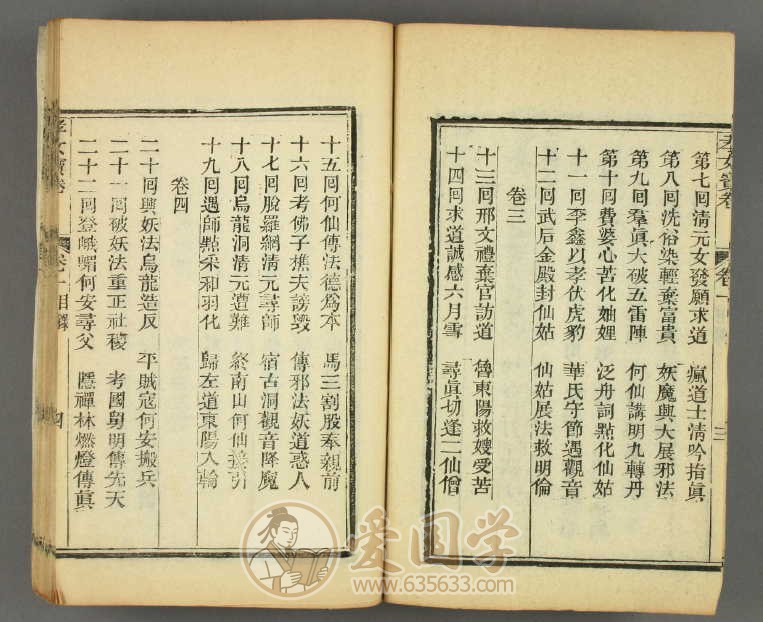 第七回清元女發願求道　瘋道士清吟指眞
第八回洗俗染輕棄富貴　妖魔興大展邪法
第九回羣眞大破五雷陣　何仙講明九轉丹
第十回費婆心苦化妯娌　泛舟詞點化仙姑
十一回李鑫以孝伏虎豹　華氏守節遇觀音
十二回武后金殿封仙姑　仙姑展法救明倫
卷三
十三回邢文禮棄官訪道　魯東陽救嫂受苦
十四回求道誠感六月雪　尋眞切逢二仙僧
十五回何仙傳法德爲本　馬三割股奉親前
十六回考佛子樵夫謗毀　傳邪法妖道惑人
十七回脫羅網清元尋師　宿古洞觀音降魔
十八回烏龍洞清元遭難　終南山何仙接引
十九回遇師點采和羽化　歸左道東陽入輪
卷四
二十回興妖法烏龍造反　平賊寇何安搬兵
二十一回破妖法重正社稷　考國舅明傳先天
二十二回登峨嵋何安尋父　隱禪林燃燈傳眞
女寶卷　卷一目錄　四
愛国学
www.635633.com